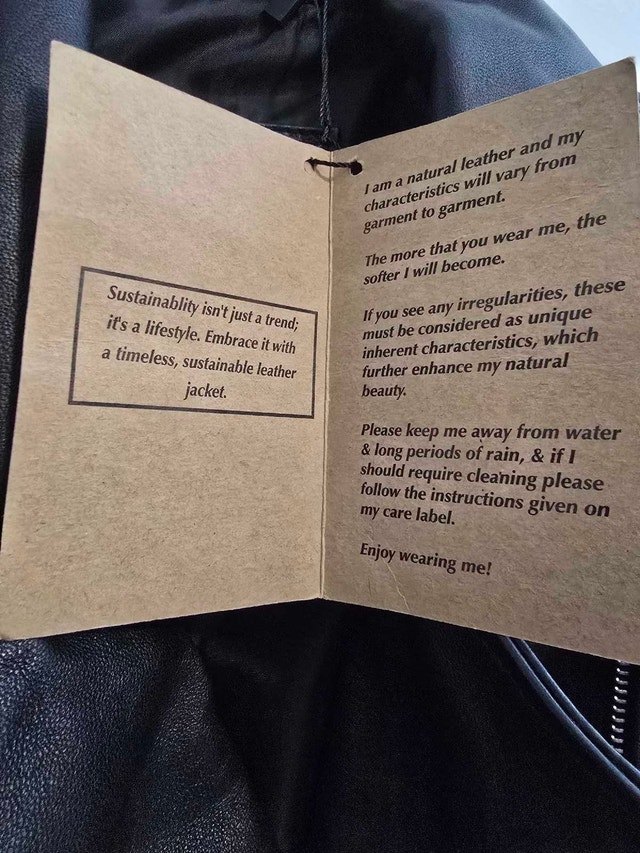 Sustainablity isn't just a trend;
it's a lifestyle. Embrace it with
a timeless, sustainable leather
jacket.
I am a natural leather and my
characteristics will vary from
garment to garment.
The more that you wear me, the
softer I will become.
If you see any irregularities, these
must be considered as unique
inherent characteristics, which
further enhance my natural
beauty.
Please keep me away from water
& long periods of rain, & if I
should require cleaning please
follow the instructions given on
my care label.
Enjoy wearing me!